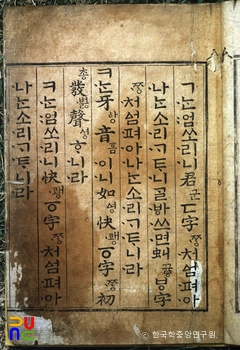 ㄱᄂᆞᆫ엄쏘리니君군ㄷ字ᄍᆞᆼ처ᅀᅥᆷ펴아
나ᄂᆞᆫ소리ᄀᆞᄐᆞ니ᄀᆞᆯᄫᅡ쓰면虯뀨ᇢㅸ字
ᄍᆞᆼ처ᅀᅥᆷ펴아나ᄂᆞᆫ소리ᄀᆞᄐᆞ니라
ㅋᄂᆞᆫ牙앙音ᅙᅳᆷ이니如ᅀᅧᆼ快쾡ㆆ字ᄍᆞᆼ初
총發벓聲셩ᄒᆞ니라
ㅋᄂᆞᆫ엄쏘리니快쾡ㆆ字ᄍᆞᆼ처ᅀᅥᆷ펴아
나ᄂᆞᆫ소리ᄀᆞᄐᆞ니라
© 한국학중앙연구원